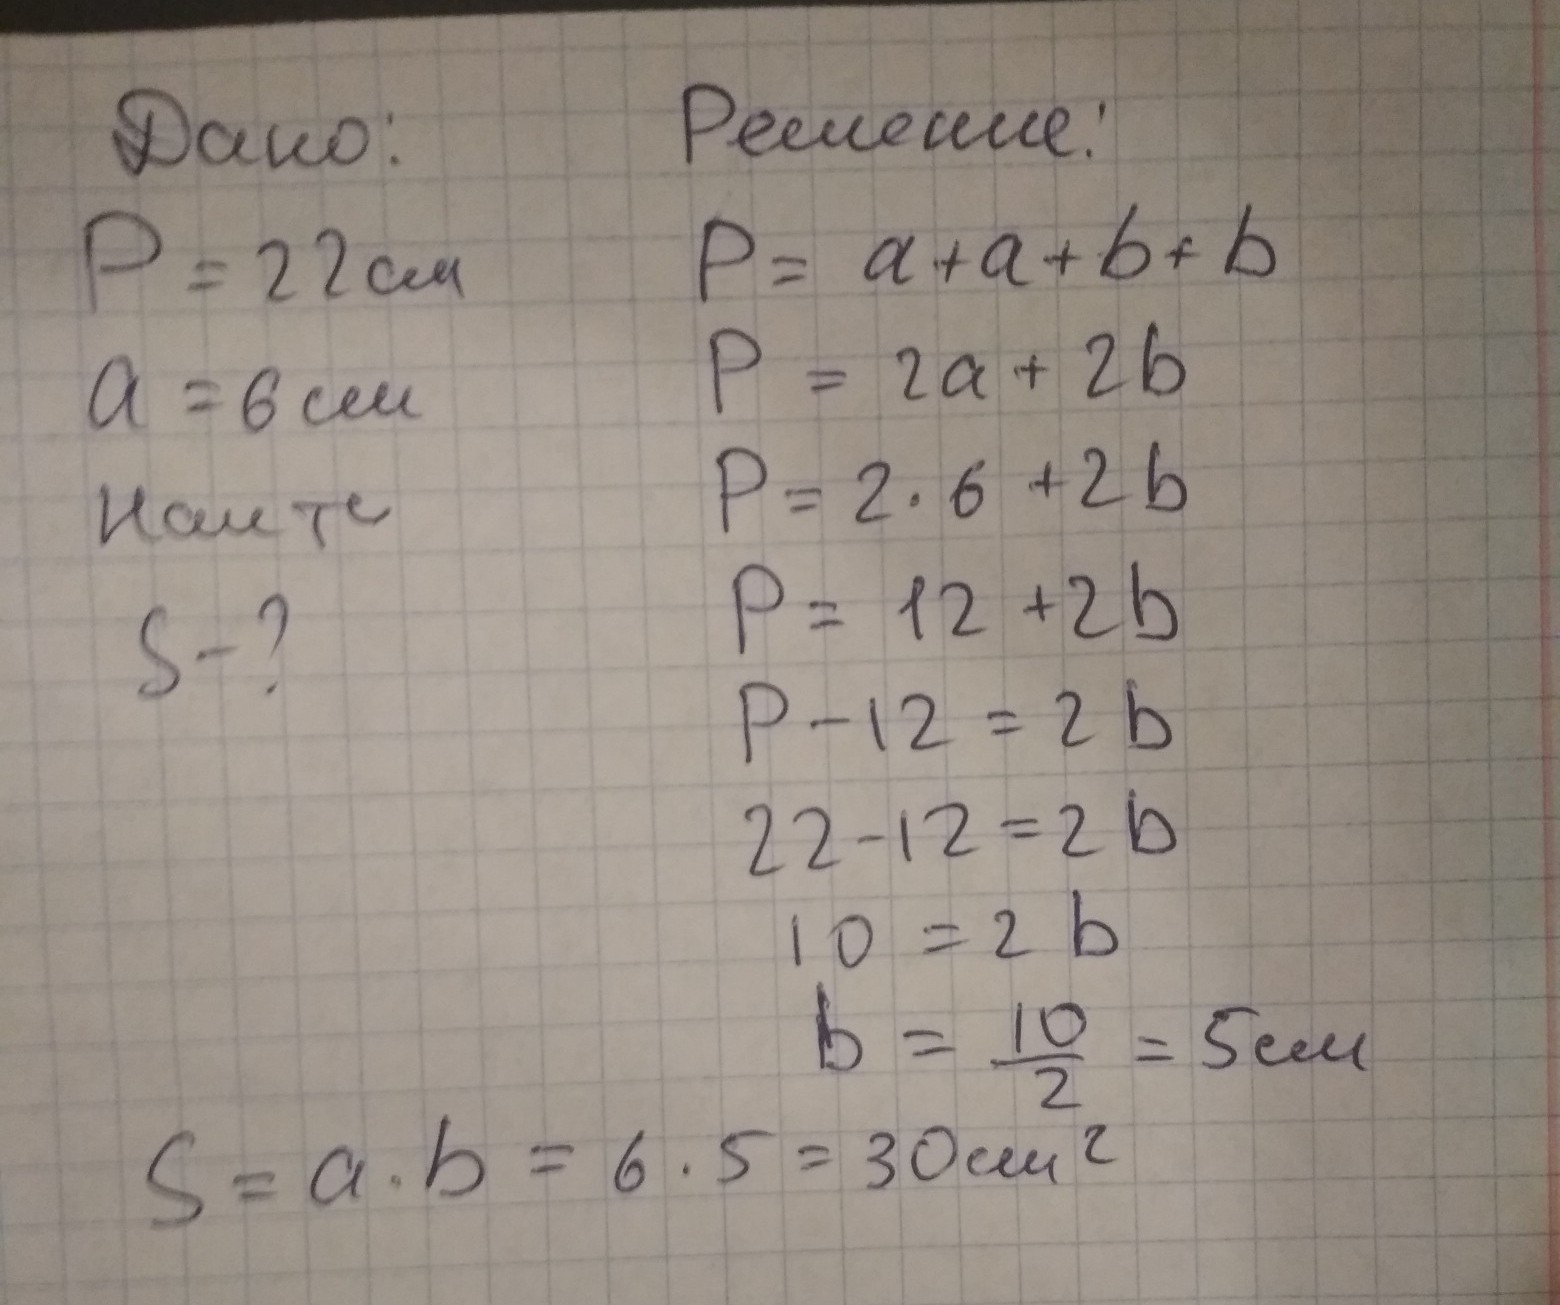 Дано:
P = 22 см
a = 6 см
Наити
S - ?
Решение:
P = a + a + b + b
P = 2a + 2b
P = 2 · 6 + 2b
P = 12 + 2b
P - 12 = 2b
22 - 12 = 2b
10 = 2b
b = 10/2 = 5 см
S = a · b = 6 · 5 = 30 см²